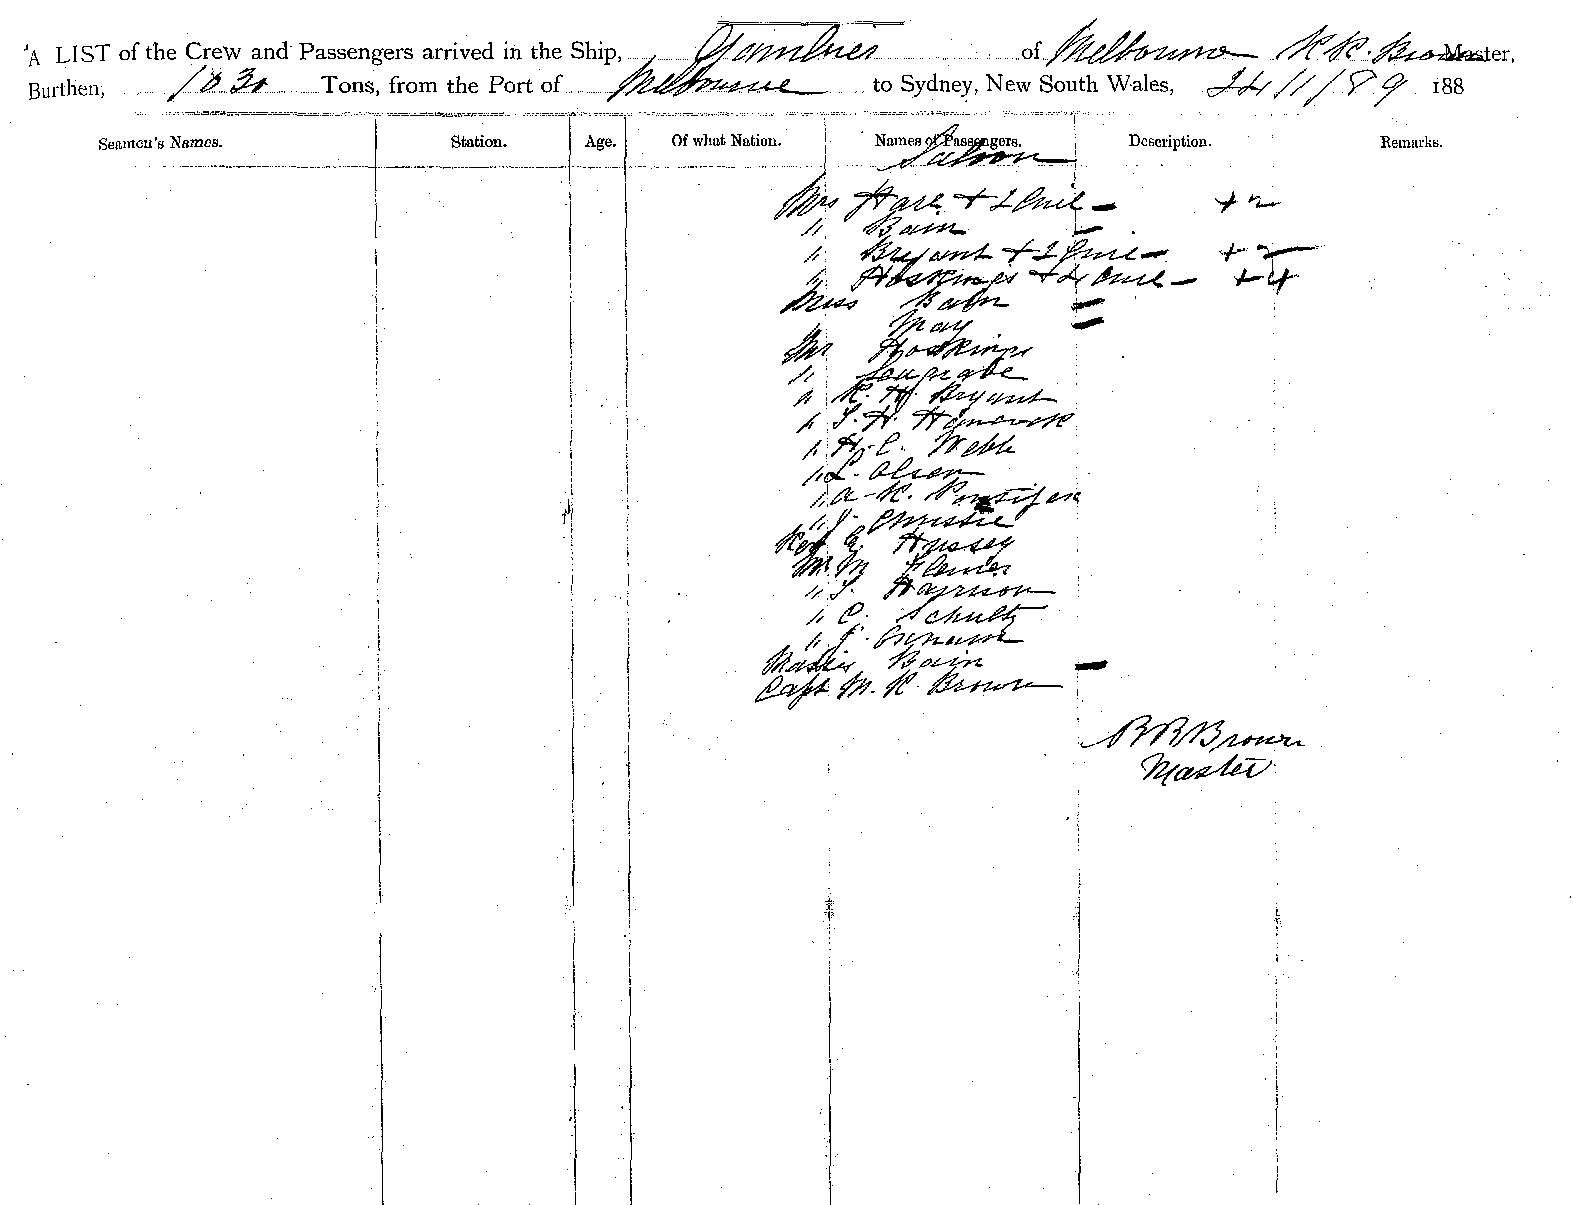 A LIST of the Crew and Passengers arrived in the Ship, Gambier of Melbourne R R. Brown Master,
Burthen, 1030 Tons, from the Port of Melbourne to Sydney, New South Wales, 24/1/89 188
Seamen's Names. Station. Age. Of what Nation. Names of Passengers. Description. Remarks.
Saloon
Mrs Hare + 2 Chil – + 2
" Bain –
" Bryant + 2 Chil – + 2
" Hoskings + 4 Chil – + 4
Miss Bain –
May –
Mr Hoskings
"
" R. H. Bryant
" S. H. Hancock
" H. C. Webb
" L. Olsen
" A. R. Pontifex
" J. Christie
Rev E. Hussey
Mr M
" S. Harrison
" C. Schultz
" J.
Master Bain –
Capt M. R. Brown
R R Brown
Master